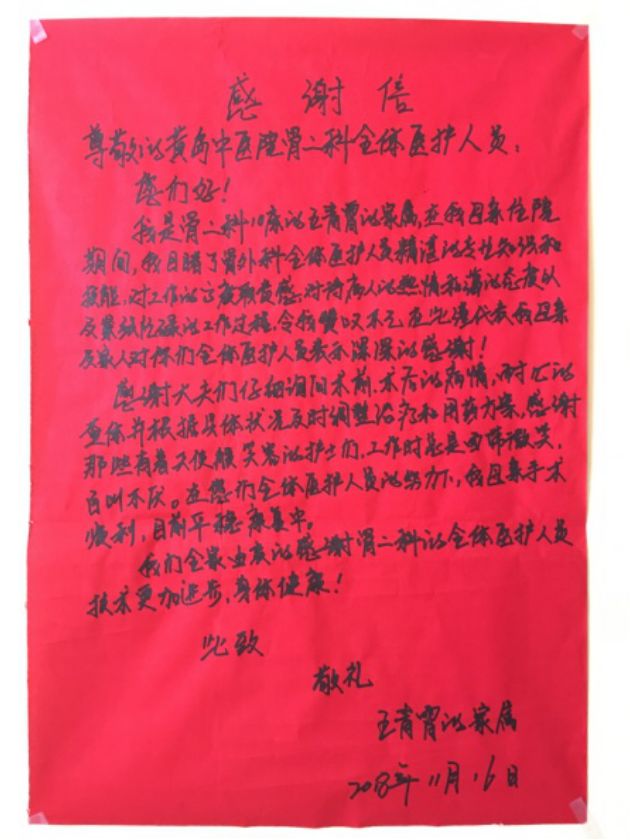 感谢信
尊敬的黄岛中医院骨二科全体医护人员：
您们好！
我是骨二科10床的王青胃的家属，在我母亲住院
期间，我目睹了骨外科全体医护人员精湛的专业知识和
技能，对工作的高度职责感，对待病人的热情和蔼的态度以
及累紧忙碌的工作过程，令我赞叹不已在此谨代表我母亲
及家人对你们全体医护人员表示深深的感谢！
感谢大夫们仔细询问术前、术后的病情，耐心的
查体并根据具体状况及时调整治疗和用药方案，感谢
那些有着天使般笑容的护士们，工作时总是面带微笑，
百叫不厌。在您们全体医护人员的努力下，我母亲手术
顺利，目前平稳康复中。
我们全家由衷的感谢骨二科的全体医护人员
技术更加进步，身体健康！
此致
敬礼
王青胃的家属
2018年11月16日